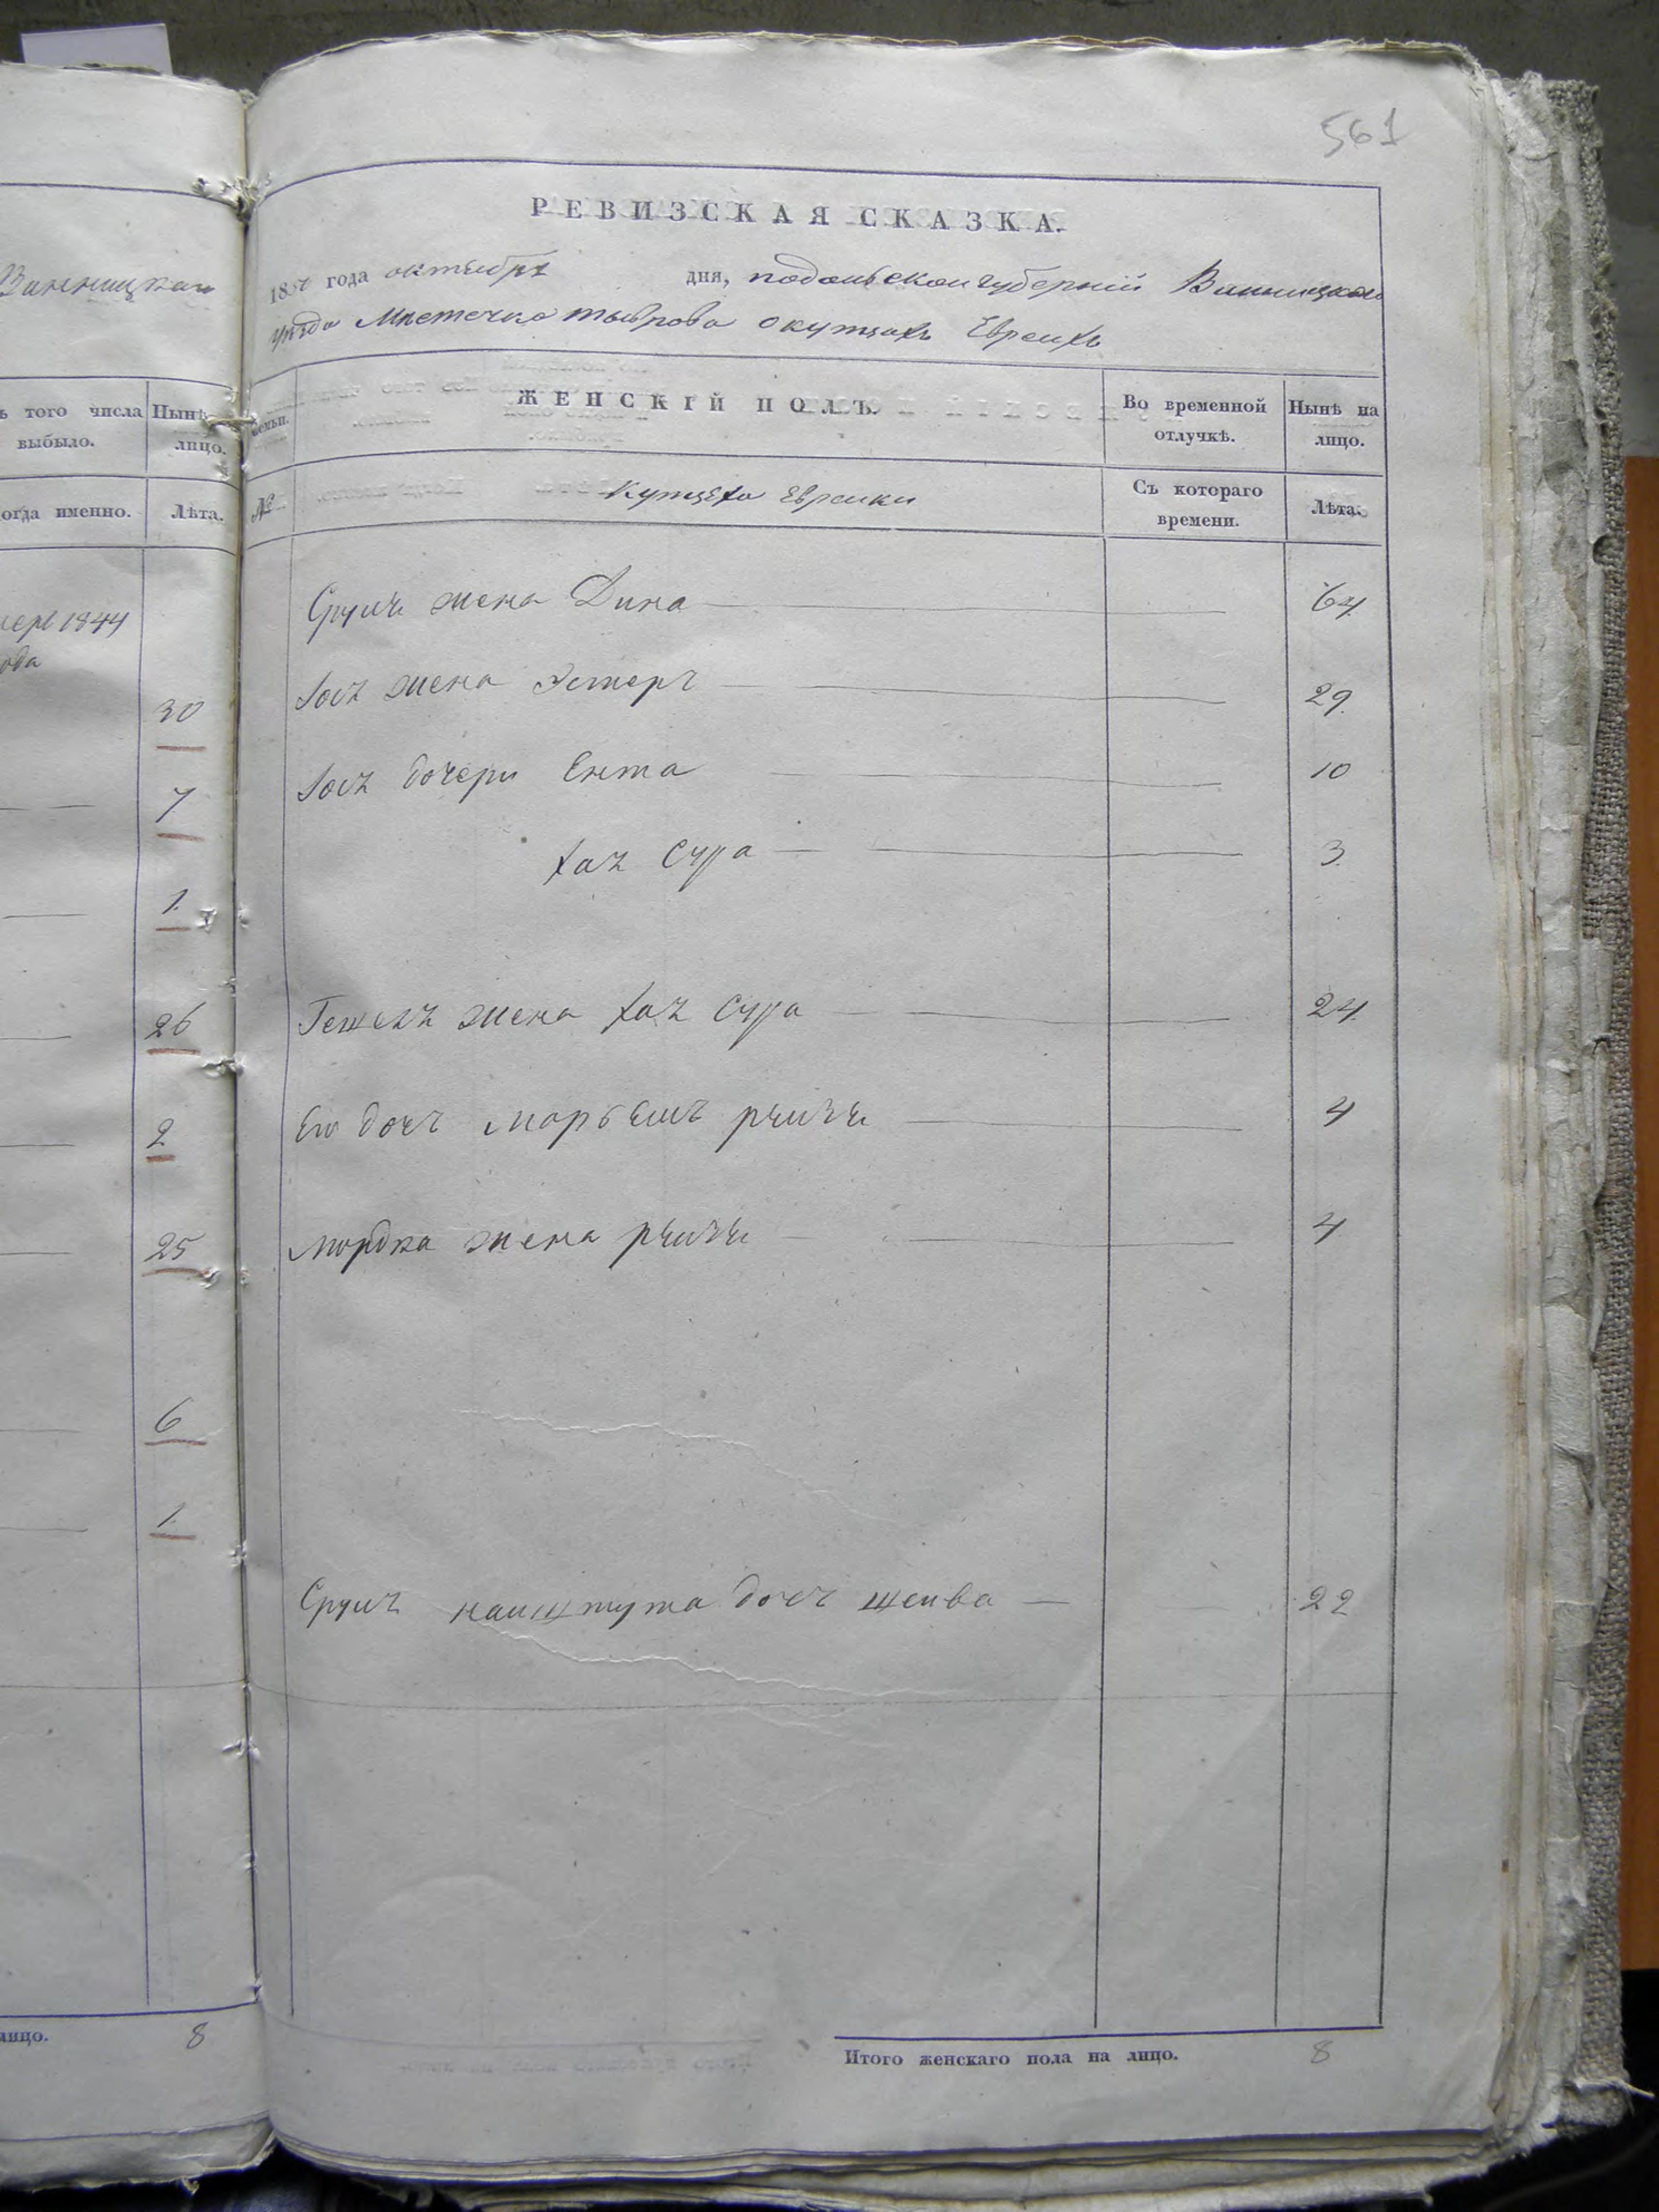 561
Винницкаго
РЕВИЗСКАЯ СКАЗКА.
1850 года октября дня, подольской губерніи Винницкаго
уезда Местечка тыврова окупцахъ Евреихъ
ъ того числа выбыло.
Нынѣ лицо.
Семьи.
ЖЕНСКІЙ ПОЛЪ.
Во временной отлучкѣ.
Нынѣ на лицо.
огда именно.
Лѣта.
№
Еврейки
Съ котораго времени.
Лѣта.
1844
ода
30
7
1.
26
2
25
6
1.
Сруль жена Дина 64
Іось жена Эстеръ 29.
Іось дочери Ента 10
хая Сура 3.
Гешель жена хая Сура 24
Его дочь рейзе 4
мордка жена рейзе 4
Сруль дочь шейва 22
лицо. 8
Итого женскаго пола на лицо. 8